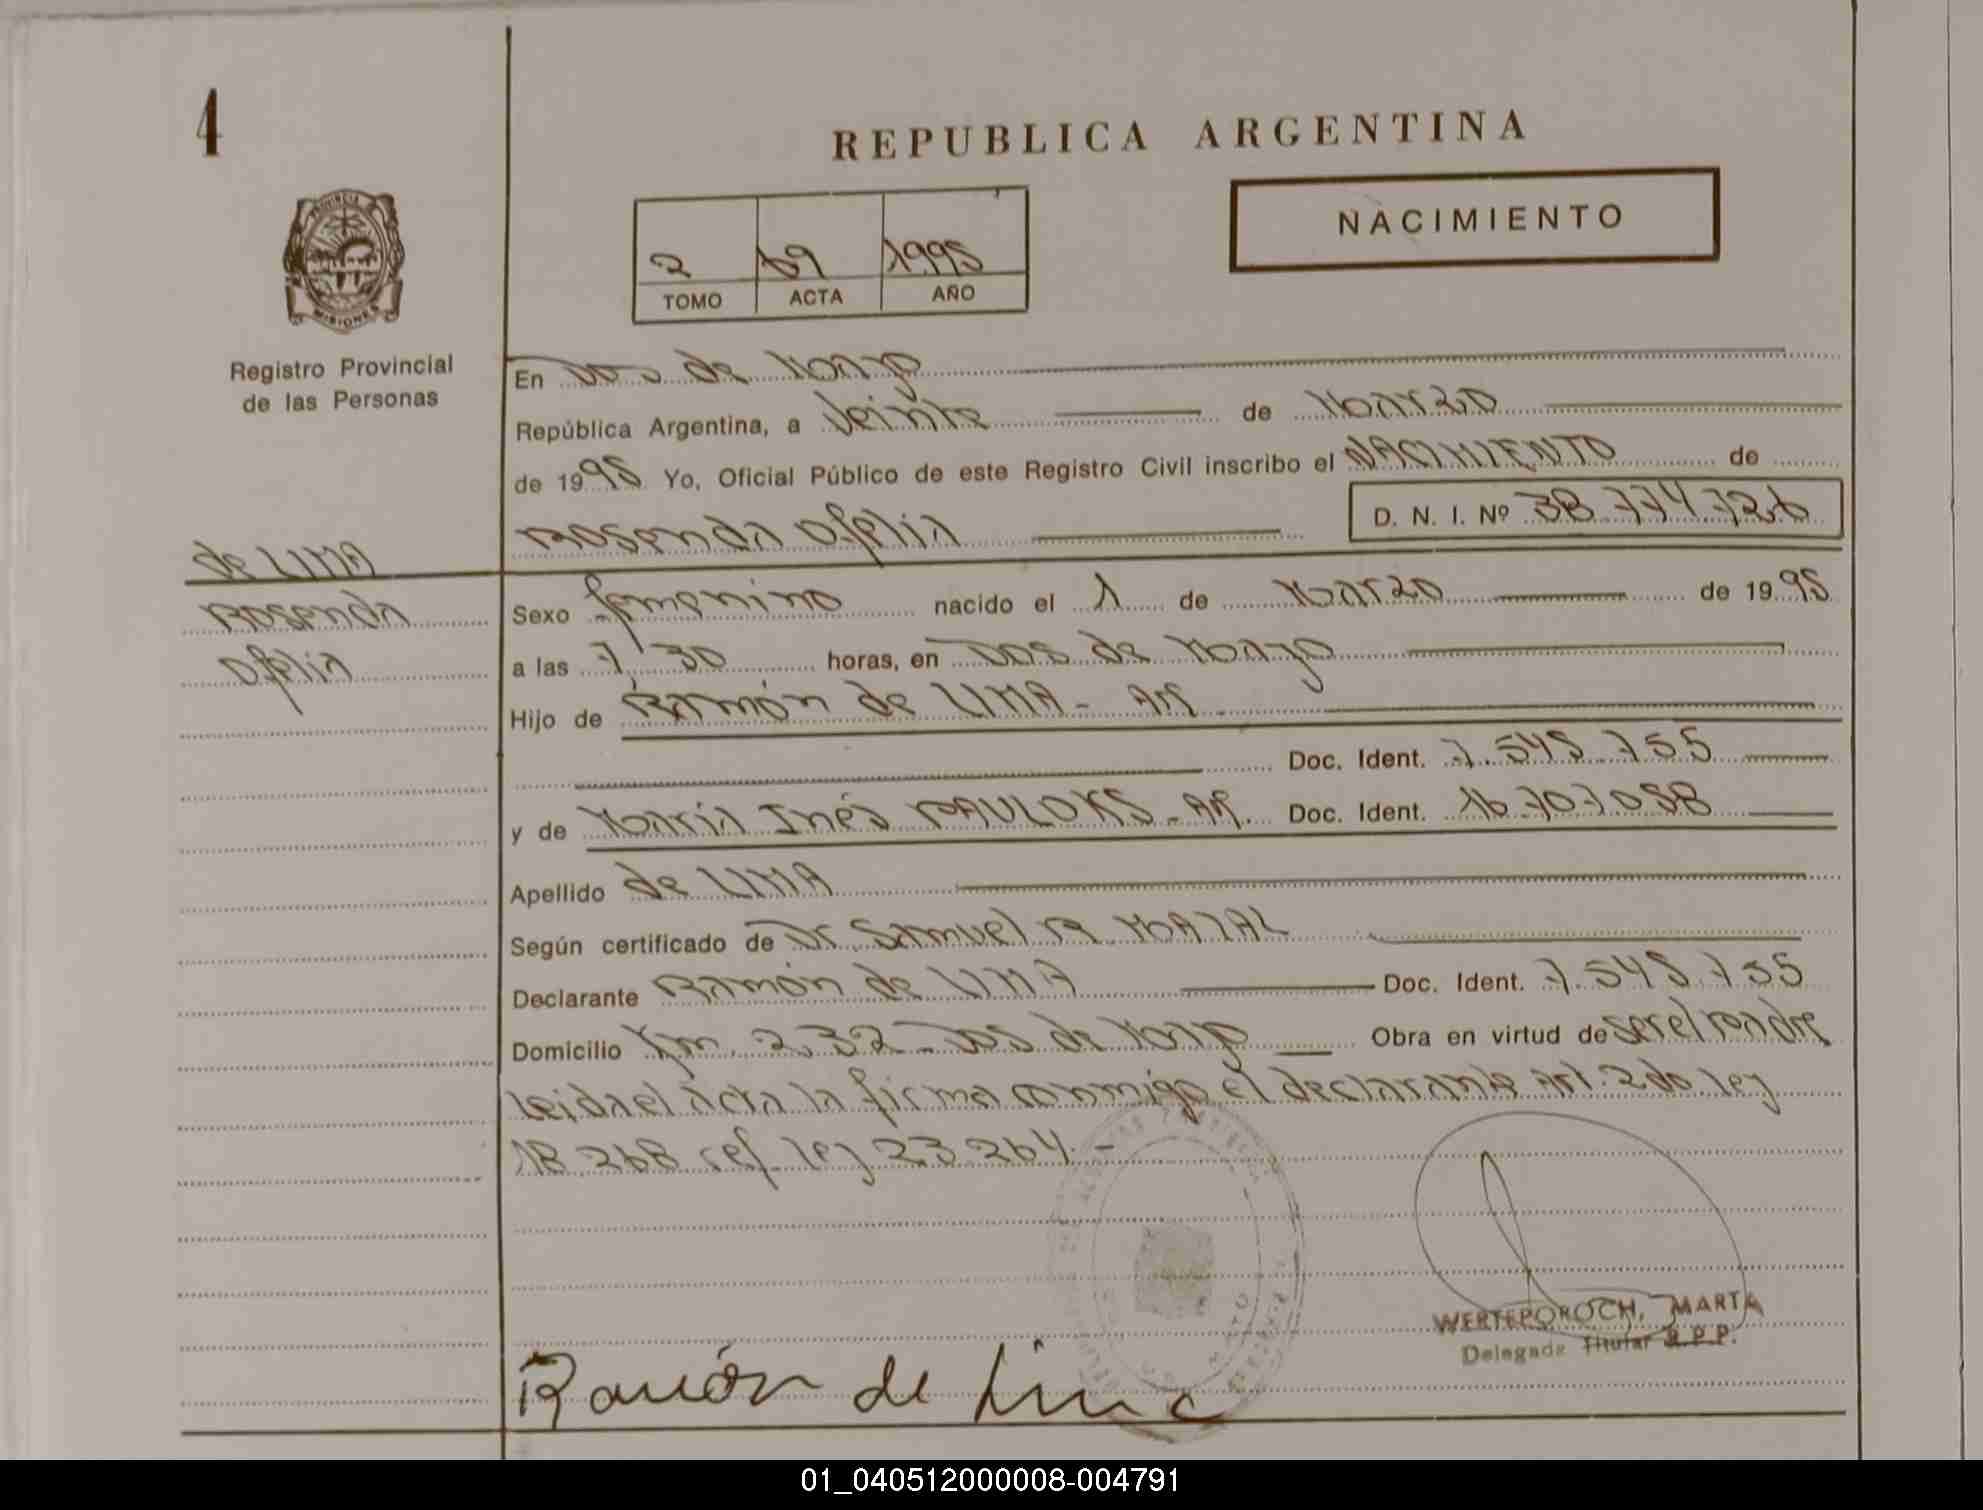 4
REPUBLICA ARGENTINA
NACIMIENTO
2 69 1995
TOMO ACTA AÑO
PROVINCIA
MISIONES
Registro Provincial
de las Personas
En Dos de Mayo
República Argentina, a Veinte de Marzo
de 1995 Yo, Oficial Público de este Registro Civil inscribo el NACIMIENTO de
Rosenda Ofelia D. N. I. Nº 38.774.726
de LIMA
Rosenda
Ofelia
Sexo femenino nacido el 1 de Marzo de 1995
a las 7 30 horas, en Dos de Mayo
Hijo de Ramón de LIMA - AR.
Doc. Ident. 7.545.755
y de María Inés PAULOKS - AR. Doc. Ident. 16.707.058
Apellido de LIMA
Según certificado de Dr. Samuel R MAZAL
Declarante Ramón de LIMA Doc. Ident. 7.545.755
Domicilio Km. 232 - Dos de Mayo Obra en virtud de ser el padre
Leida el acta la firma conmigo el declarante Art. 2do ley
18.268 ref. ley 23.264. -
WERTEPOROCH, MARTA
Delegada Titular R.P.P.
Ramón de Lima
01_040512000008-004791